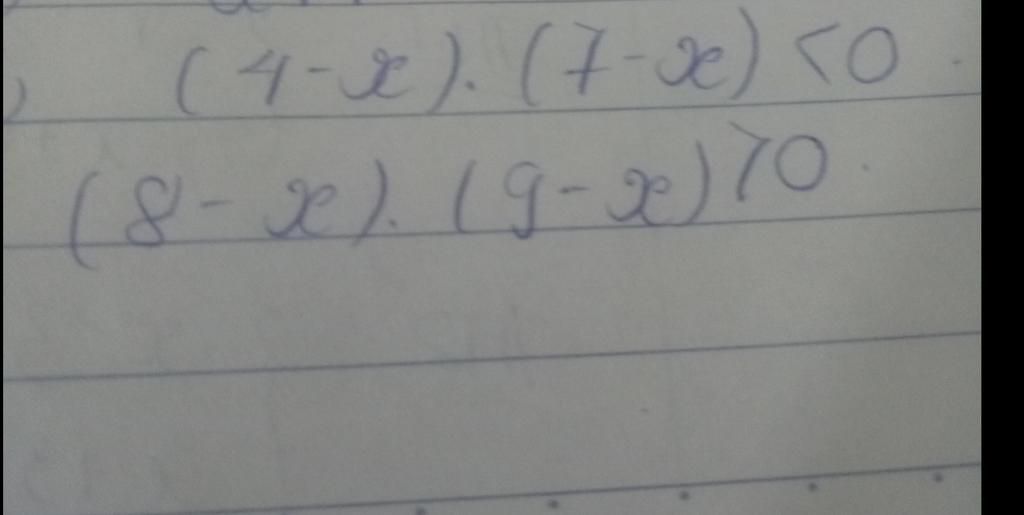 ) (4 - x). (7 - x) < 0.
(8 - x). (9 - x) > 0.